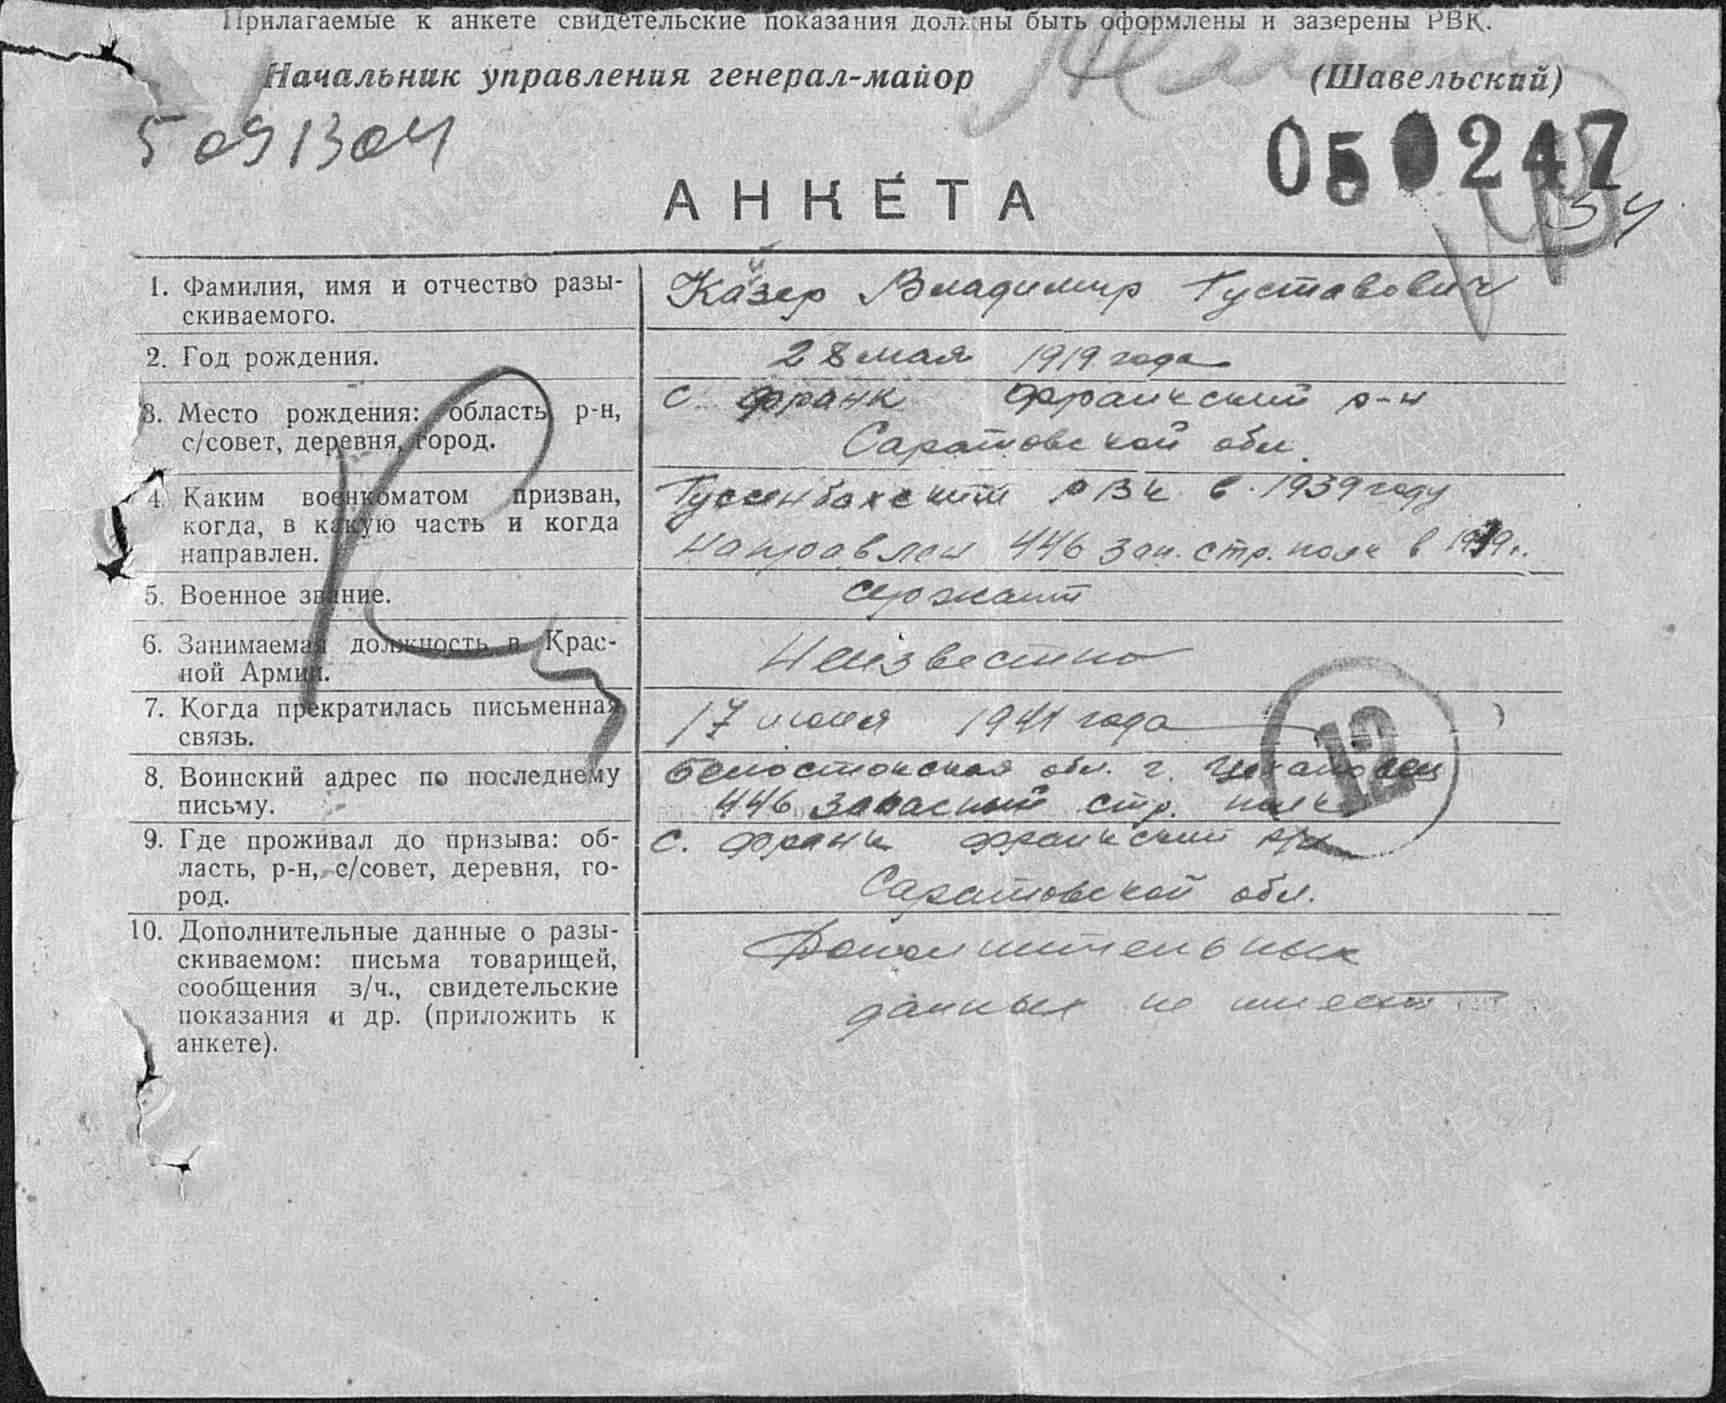 Прилагаемые к анкете свидетельские показания должны быть оформлены и заверены РВК.
Начальник управления генерал-майор (Шавельский)
5 09 1304
050247
34
АНКЕТА
1. Фамилия, имя и отчество разы-
скиваемого.
Кайзер Владимир Густавович
2. Год рождения.
28 мая 1919 года
3. Место рождения: область, р-н,
с/совет, деревня, город.
с. Франк Франкский р-н
Саратовской обл.
4. Каким военкоматом призван,
когда, в какую часть и когда
направлен.
Гуссенбахский РВК в 1939 году
направлен 446 зап. стр. полк в 1939 г.
5. Военное звание.
сержант
6. Занимаемая должность в Крас-
ной Армии.
Неизвестно
7. Когда прекратилась письменная
связь.
17 июня 1941 года
8. Воинский адрес по последнему
письму.
Белостокская обл. г. Цехановец
446 запасный стр. полк
12
9. Где проживал до призыва: об-
ласть, р-н, с/совет, деревня, го-
род.
с. Франк Франкский р-н
Саратовской обл.
10. Дополнительные данные о разы-
скиваемом: письма товарищей,
сообщения з/ч., свидетельские
показания и др. (приложить к
анкете).
Дополнительных
данных не имеет